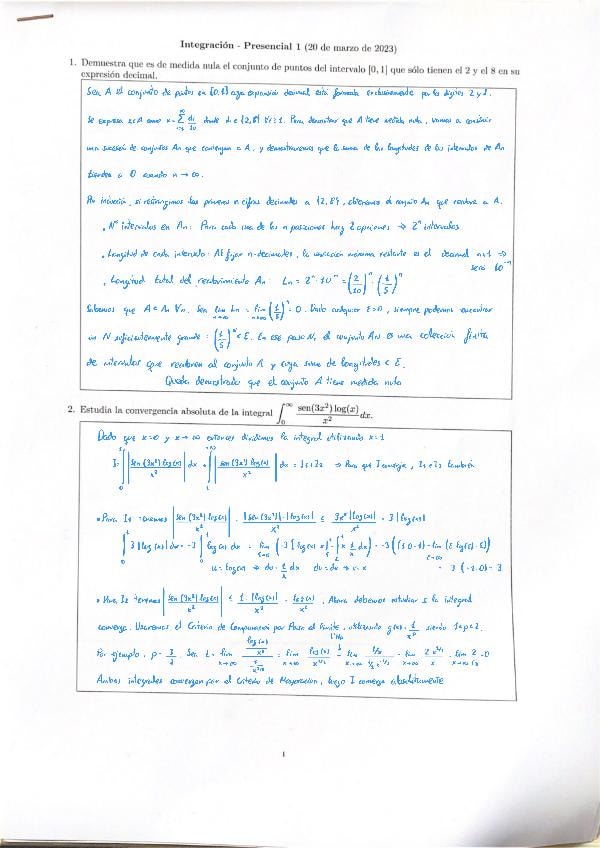 Integración - Presencial 1 (20 de marzo de 2023)
1. Demuestra que es de medida nula el conjunto de puntos del intervalo [0, 1] que sólo tienen el 2 y el 8 en su
expresión decimal.
Sea A el conjunto de puntos en [0,1] cuya expansión decimal está formada exclusivamente por los dígitos 2 y 8.
Se expresa x∈A como x = Σ dᵢ/10ⁱ donde dᵢ∈{2,8} ∀i≥1. Para demostrar que A tiene medida nula, vamos a construir
una sucesión de conjuntos An que contengan a A, y demostraremos que la suma de las longitudes de los intervalos de An
tienden a 0 cuando n→∞.
Por inducción, si restringimos las primeras n cifras decimales a {2,8}, obtenemos el conjunto An que recubre a A.
• Nº intervalos en An: Para cada una de las n posiciones hay 2 opciones ⇒ 2ⁿ intervalos
• Longitud de cada intervalo: Al fijar n-decimales, la variación máxima restante es el decimal n+1 ⇒
será 10⁻ⁿ
• Longitud total del recubrimiento An: Ln = 2ⁿ·10⁻ⁿ = (2/10)ⁿ = (1/5)ⁿ
Sabemos que A⊂An ∀n. Sea lim n→∞ Ln = lim n→∞ (1/5)ⁿ = 0. Dado cualquier ε>0, siempre podemos encontrar
un N suficientemente grande: (1/5)ᴺ < ε. En ese paso N, el conjunto AN es una colección finita
de intervalos que recubren al conjunto A y cuya suma de longitudes < ε.
Queda demostrado que el conjunto A tiene medida nula
2. Estudia la convergencia absoluta de la integral ∫₀^∞ sen(3x²) log(x)/x² dx.
Dado que x=0 y x→∞ entonces dividimos la integral utilizando x=1
I = ∫₀¹ |sen(3x²) log(x)/x²| dx + ∫₁^{+∞} |sen(3x²) log(x)/x²| dx = I₁+I₂ ⇒ Para que I converja, I₁ e I₂ también
• Para I₁ tenemos |sen(3x²) log(x)/x²| = |sen(3x²)|·|log(x)|/x² ≤ 3x²|log(x)|/x² = 3|log(x)|
∫₀¹ 3|log(x)| dx = -3 ∫₀¹ log(x) dx = lim (-3 [log(x)·x] - ∫ x 1/x dx) = -3 ((1·0-1) - lim (ε log(ε)-ε))
u = log(x) ⇒ du = 1/x dx dv = dx ⇒ v = x = -3(-1-0) = 3
• Para I₂ tenemos |sen(3x²) log(x)/x²| ≤ 1·|log(x)|/x² = log(x)/x². Ahora debemos estudiar si la integral
converge. Usaremos el Criterio de Comparación por Paso al límite, utilizando g(x) = 1/xᵖ siendo 1<p<2.
L'Hôp
Por ejemplo, p = 3/2. Sea L = lim x→∞ (log(x)/x²)/(1/x^{3/2}) = lim x→∞ log(x)/x^{1/2} = lim x→∞ (1/x)/(1/2 x^{-1/2}) = lim x→∞ 2x^{1/2}/x = lim x→∞ 2/√x = 0
Ambas integrales convergen por el Criterio de Mayoración, luego I converge absolutamente
1